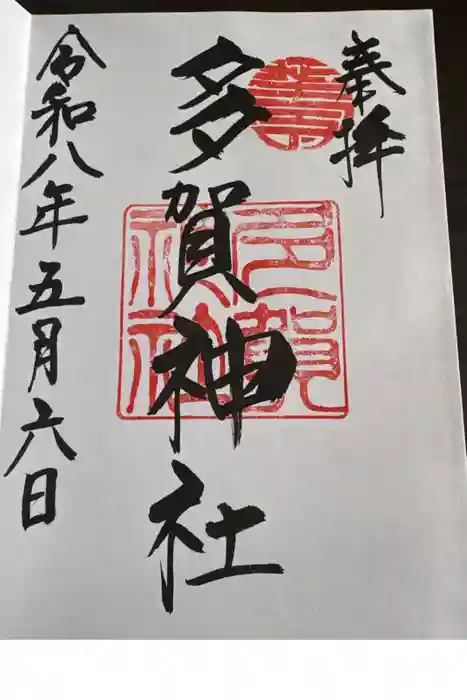 奉拝
多賀神社
令和八年五月六日
多賀神社